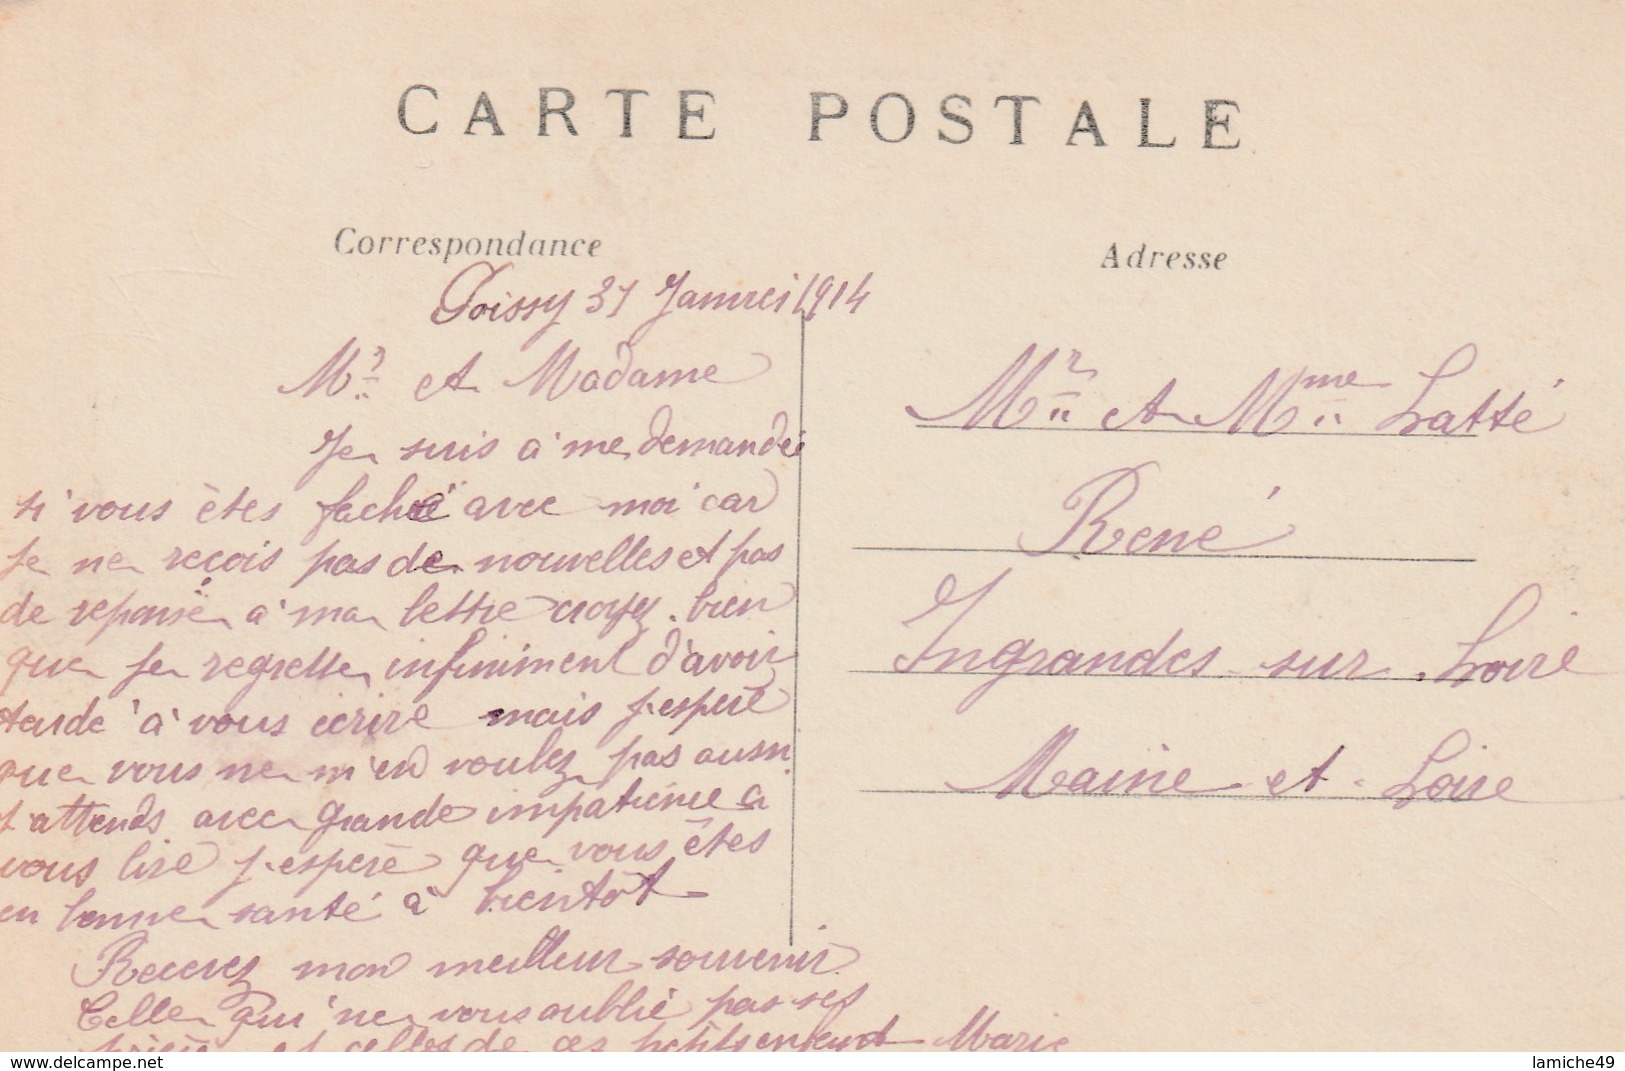 CARTE POSTALE
Correspondance
Poissy 31 Janvier 1914
Mr et Madame
Je suis a me demander
si vous êtes faché avec moi car
Je ne reçois pas de nouvelles et pas
de reponse a ma lettre croyez bien
que je regrette infiniment d'avoir
tardé à vous écrire mais j'espere
que vous ne m'en voulez pas aussi
j'attends avec grande impatience a
vous lire j'espere que vous êtes
en bonne santé à bientôt
Recevez mon meilleur souvenir
Celle qui ne vous oublie pas ses
et celles de ces petits enfant Marie
Adresse
Mr et Mme Latté
René
Ingrandes sur Loire
Maine et Loire
www.delcampe.net
lamiche49